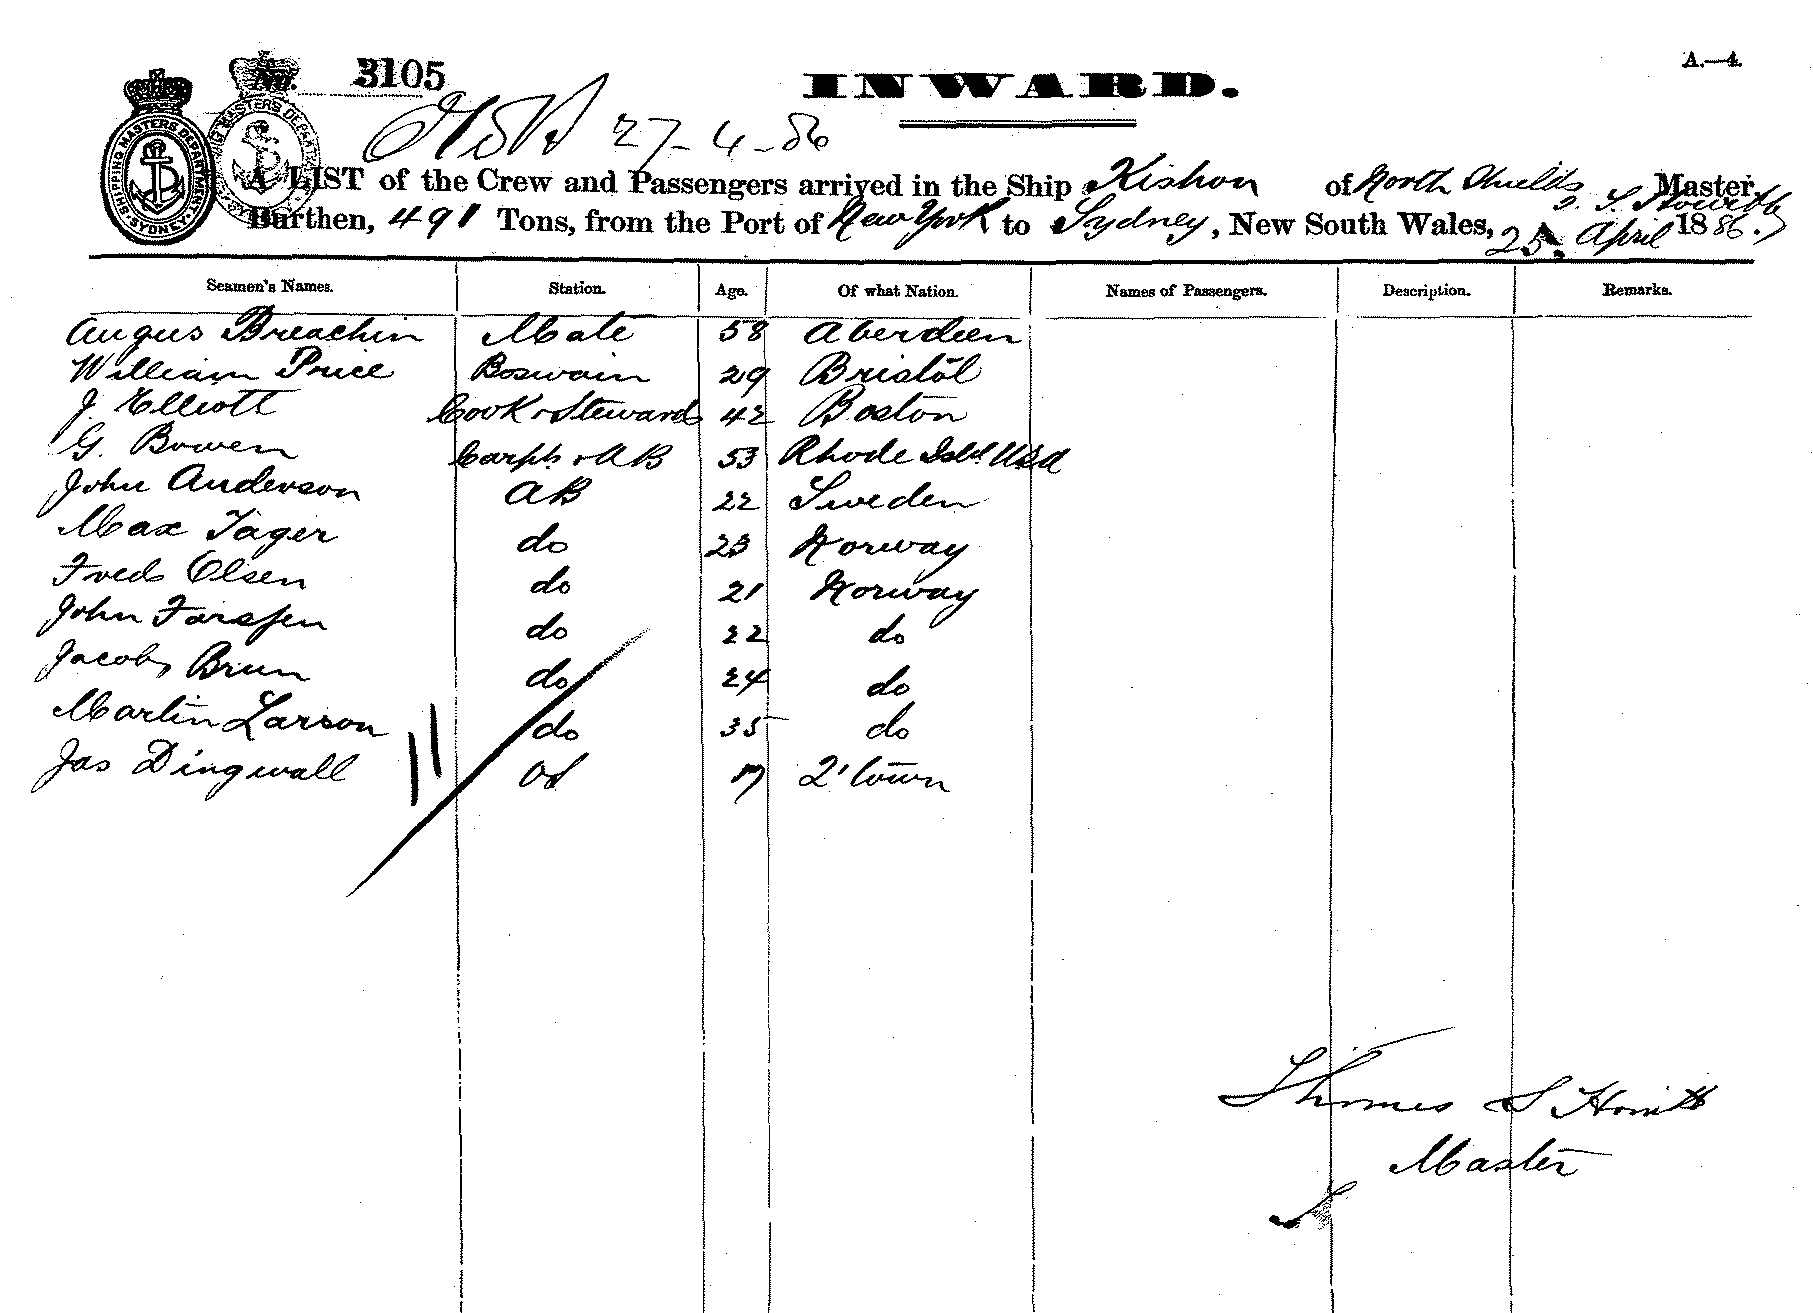 A.—4.
No. 3105
INWARD.
27-4-86
SHIPPING MASTERS DEPARTMENT SYDNEY
A LIST of the Crew and Passengers arrived in the Ship Kishon of North Shields, T. S. Howitt Master,
Burthen, 491 Tons, from the Port of New York to Sydney, New South Wales, 25. April 1886.
Seamen's Names. Station. Age. Of what Nation. Names of Passengers. Description. Remarks.
Angus Breachin Mate 58 Aberdeen
William Price Boswain 29 Bristol
J. Elliott Cook & Steward 42 Boston
G. Bowen Carpt. & AB 53 Rhode Isld. USA
John Anderson AB 22 Sweden
Max Jager do 23 Norway
Fred Olsen do 21 Norway
John do 22 do
Jacob Brun do 24 do
Martin Larson do 35 do
Jas Dingwall OS 17 Q'town
11
Thomas S Howitt
Master